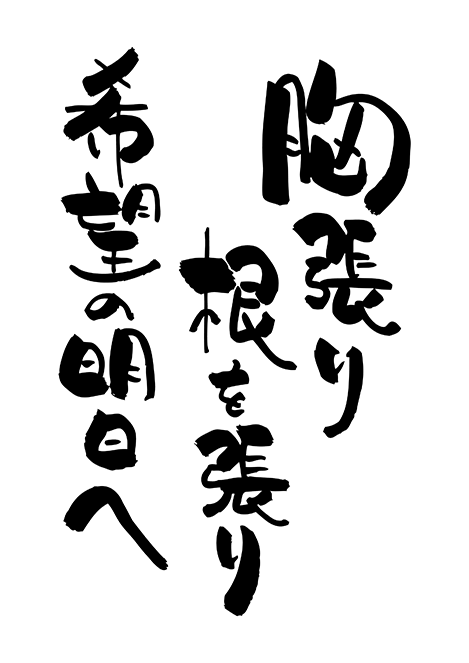 胸張り
根を張り
希望の明日へ